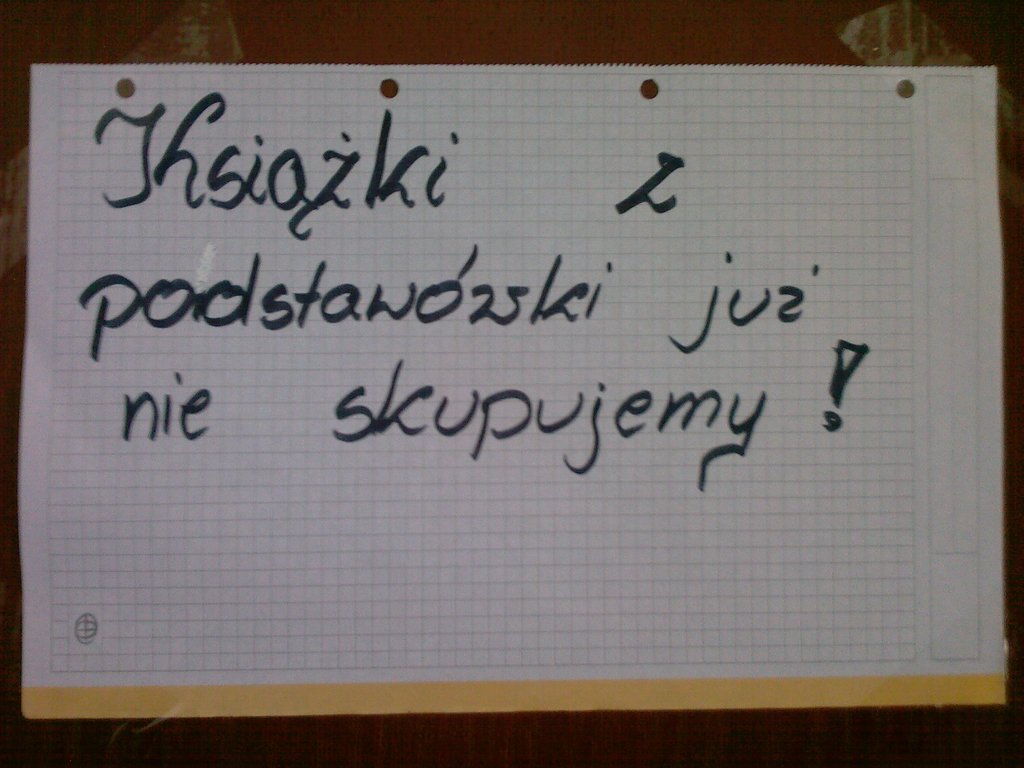 Książki z
podstawówki już
nie skupujemy!